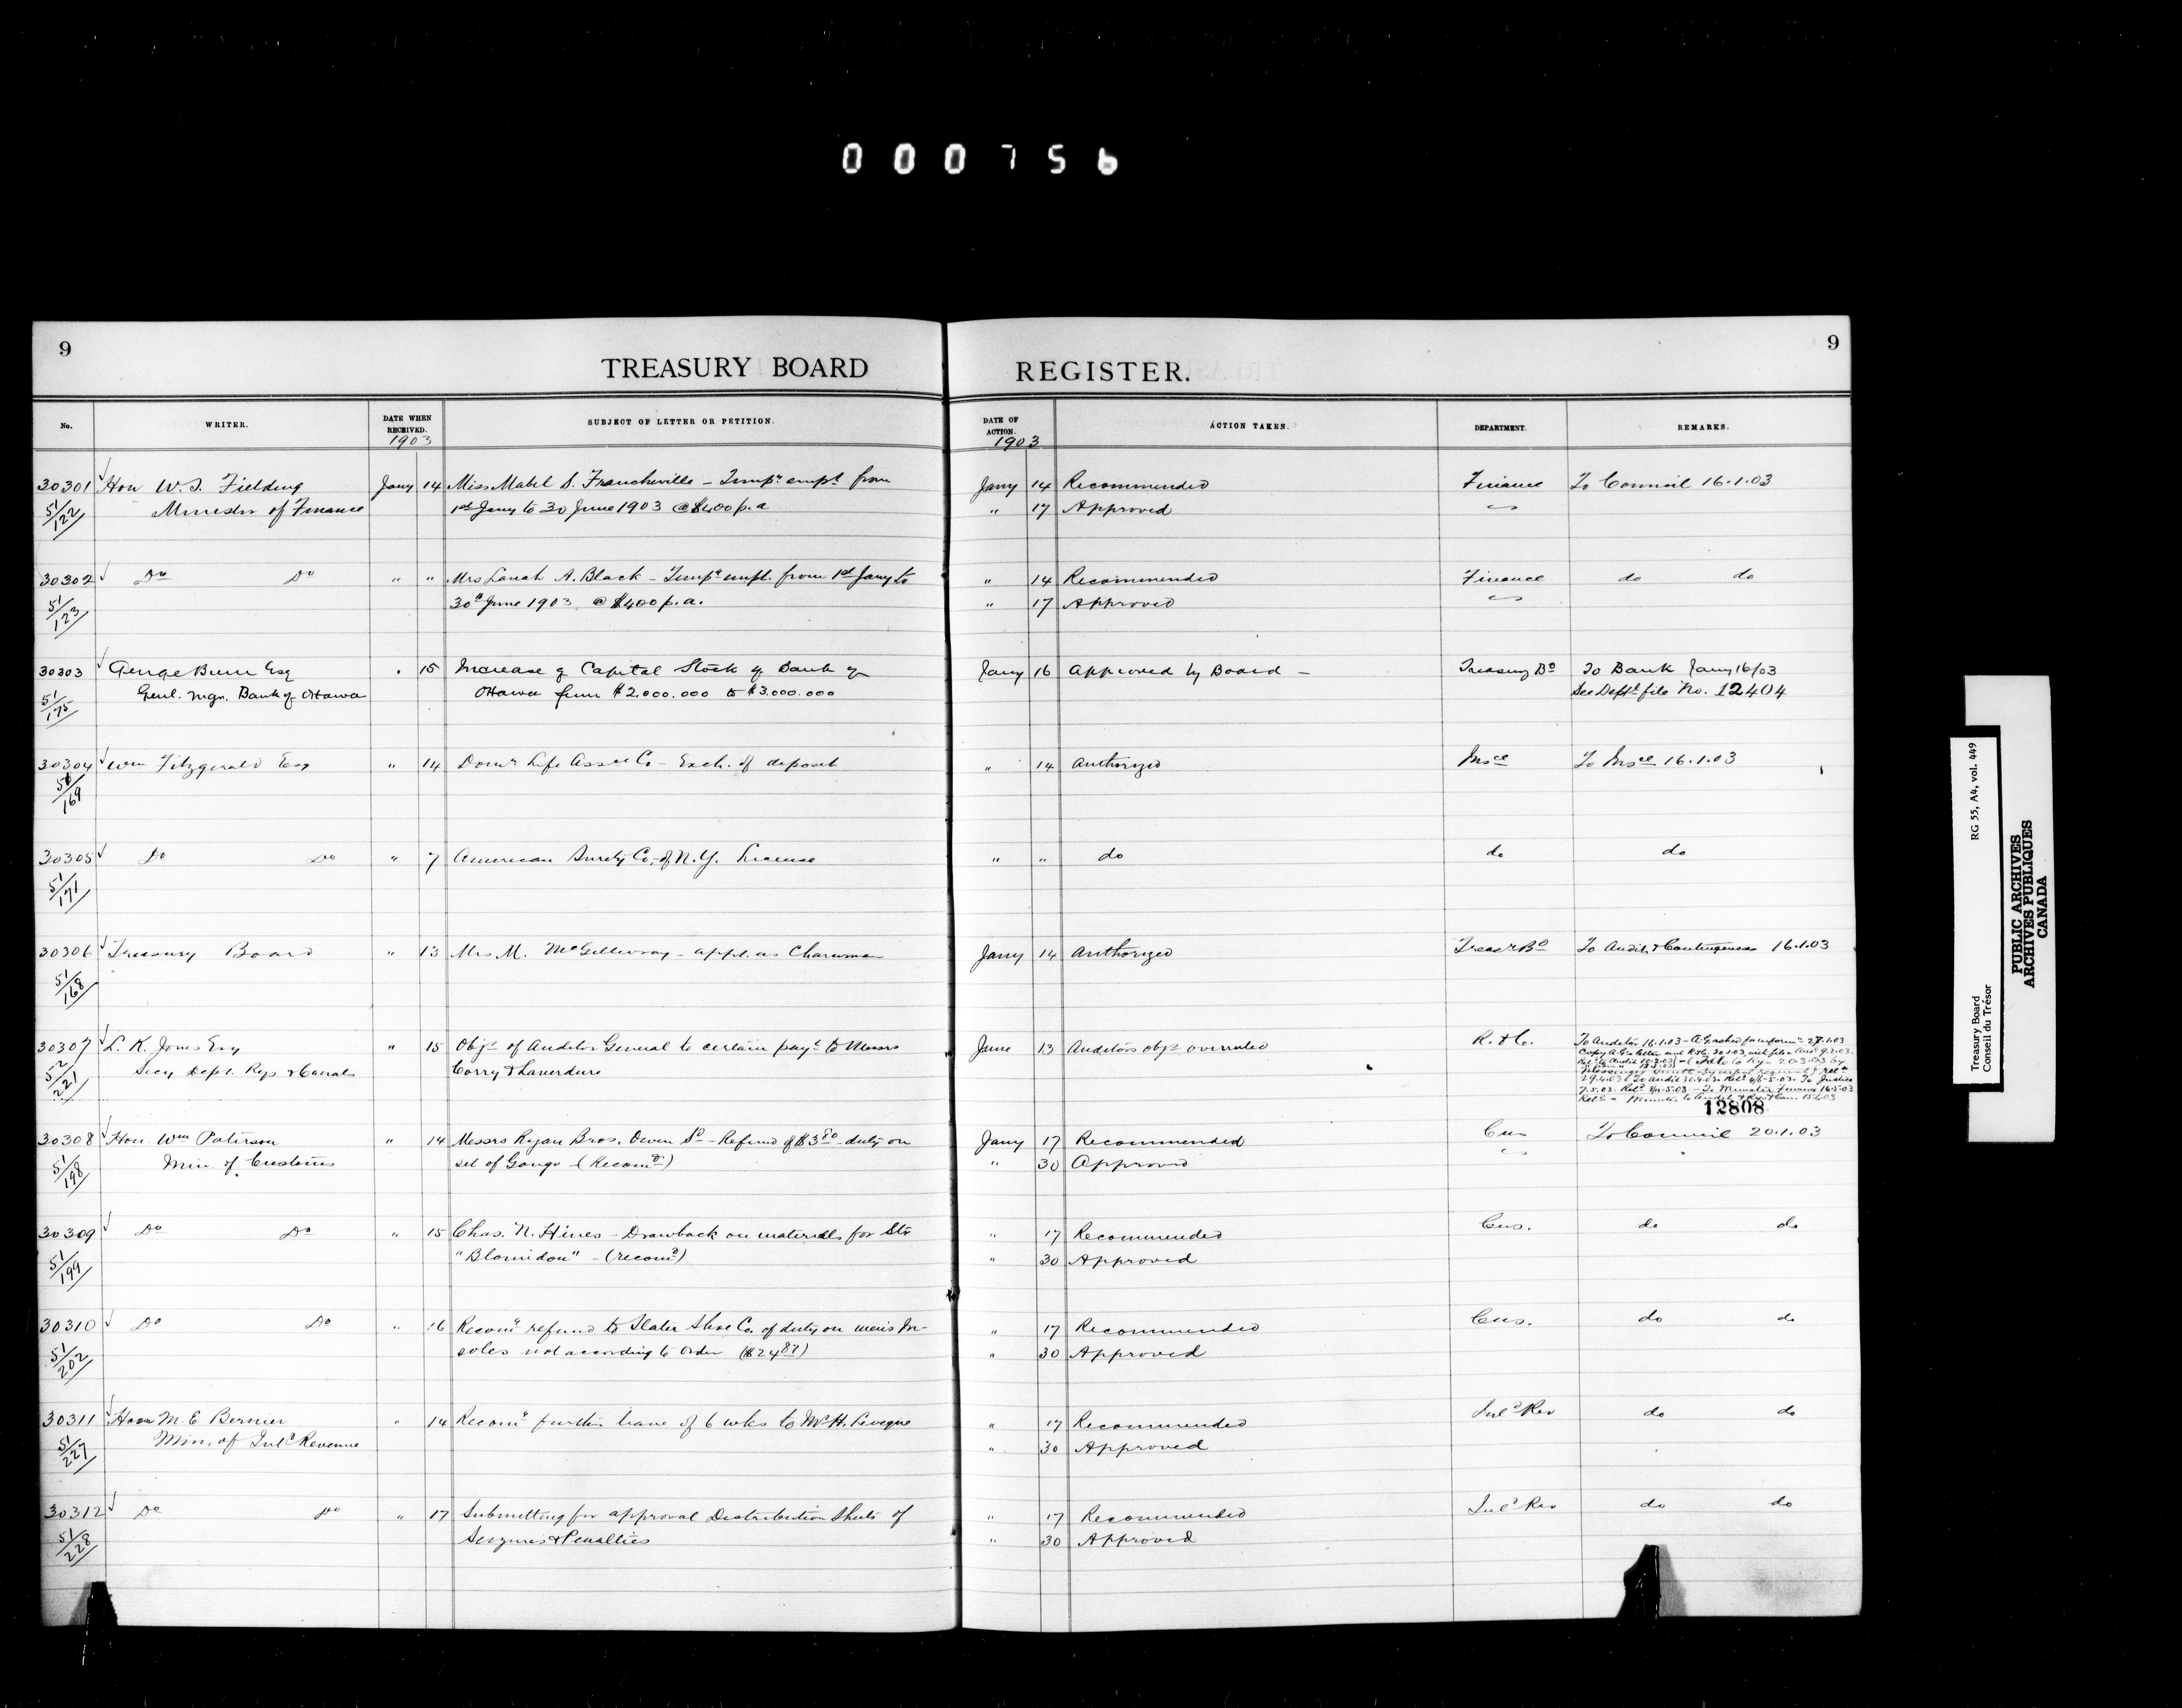 000756
9
TREASURY BOARD
REGISTER.
9
No.
WRITER.
DATE WHEN RECEIVED.
1903
SUBJECT OF LETTER OR PETITION.
DATE OF ACTION.
1903
ACTION TAKEN.
DEPARTMENT.
REMARKS.
30301 Hon W.S. Fielding Jany 14 Miss Mabel S. Francheville - Tempy empt from Jany 14 Recommended Finance To Council 16.1.03
51/122 Minister of Finance 1st Jany to 30 June 1903 @ $400 p.a " 17 Approved
30302 Do Do " " Mrs Sarah A. Black - Tempy empt. from 1st Jany to " 14 Recommended Finance do do
51/123 30th June 1903 @ $400 p.a. " 17 Approved
30303 George Burn Esq " 15 Increase of Capital Stock of Bank of Jany 16 Approved by Board - Treasury Bd To Bank Jany 16/03
51/175 Genl. Mgr. Bank of Ottawa Ottawa from $2.000.000 to $3.000.000 See Deptl file No. 12404
30304 Wm Fitzgerald Esq " 14 Domn Life Assce Co - Exch. of deposit " 14 Authorized Insce To Insce 16.1.03
51/169
30305 Do Do " 7 American Surety Co. of N.Y. License " " do do do
51/171
30306 Treasury Board " 13 Mrs M. McGillivray - appt. as Charwoman Jany 14 Authorized Treasy Bd To Audit & Contingencies 16.1.03
51/168
30307 L. K. Jones Esq " 15 Objn of Auditor General to certain payt to Messrs June 13 Auditors objn overruled R. & C. To Auditor 16.1.03 - A.G. asked for informn 27.1.03
52/221 Secy Dept. Rys & Canals Corry & Laverdure
29.4.03
12808
30308 Hon. Wm Paterson " 14 Messrs Ryan Bros. Owen Sd - Refund of $3.80 duty on Jany 17 Recommended Cus To Council 20.1.03
51/198 Min. of Customs set of Gongs - (Recomd) " 30 Approved
30309 Do Do " 15 Chas. N. Hines - Drawback on materials for Str " 17 Recommended Cus. do do
51/199 "Blomidon" - (recomd) " 30 Approved
30310 Do Do " 16 Recomg refund to Slater Shoe Co. of duty on men's In- " 17 Recommended Cus. do do
51/202 soles not according to order ($24.87) " 30 Approved
30311 Hon M. E Bernier " 14 Recomg further leave of 6 wks to Mr H. Leveque " 17 Recommended Inld Rev do do
51/227 Min. of Inld Revenue " 30 Approved
30312 Do Do " 17 Submitting for approval Distribution Sheets of " 17 Recommended Inld Rev do do
51/228 Seizures & Penalties " 30 Approved
Treasury Board RG 55, A4, vol. 449
Conseil du Trésor
PUBLIC ARCHIVES
ARCHIVES PUBLIQUES
CANADA